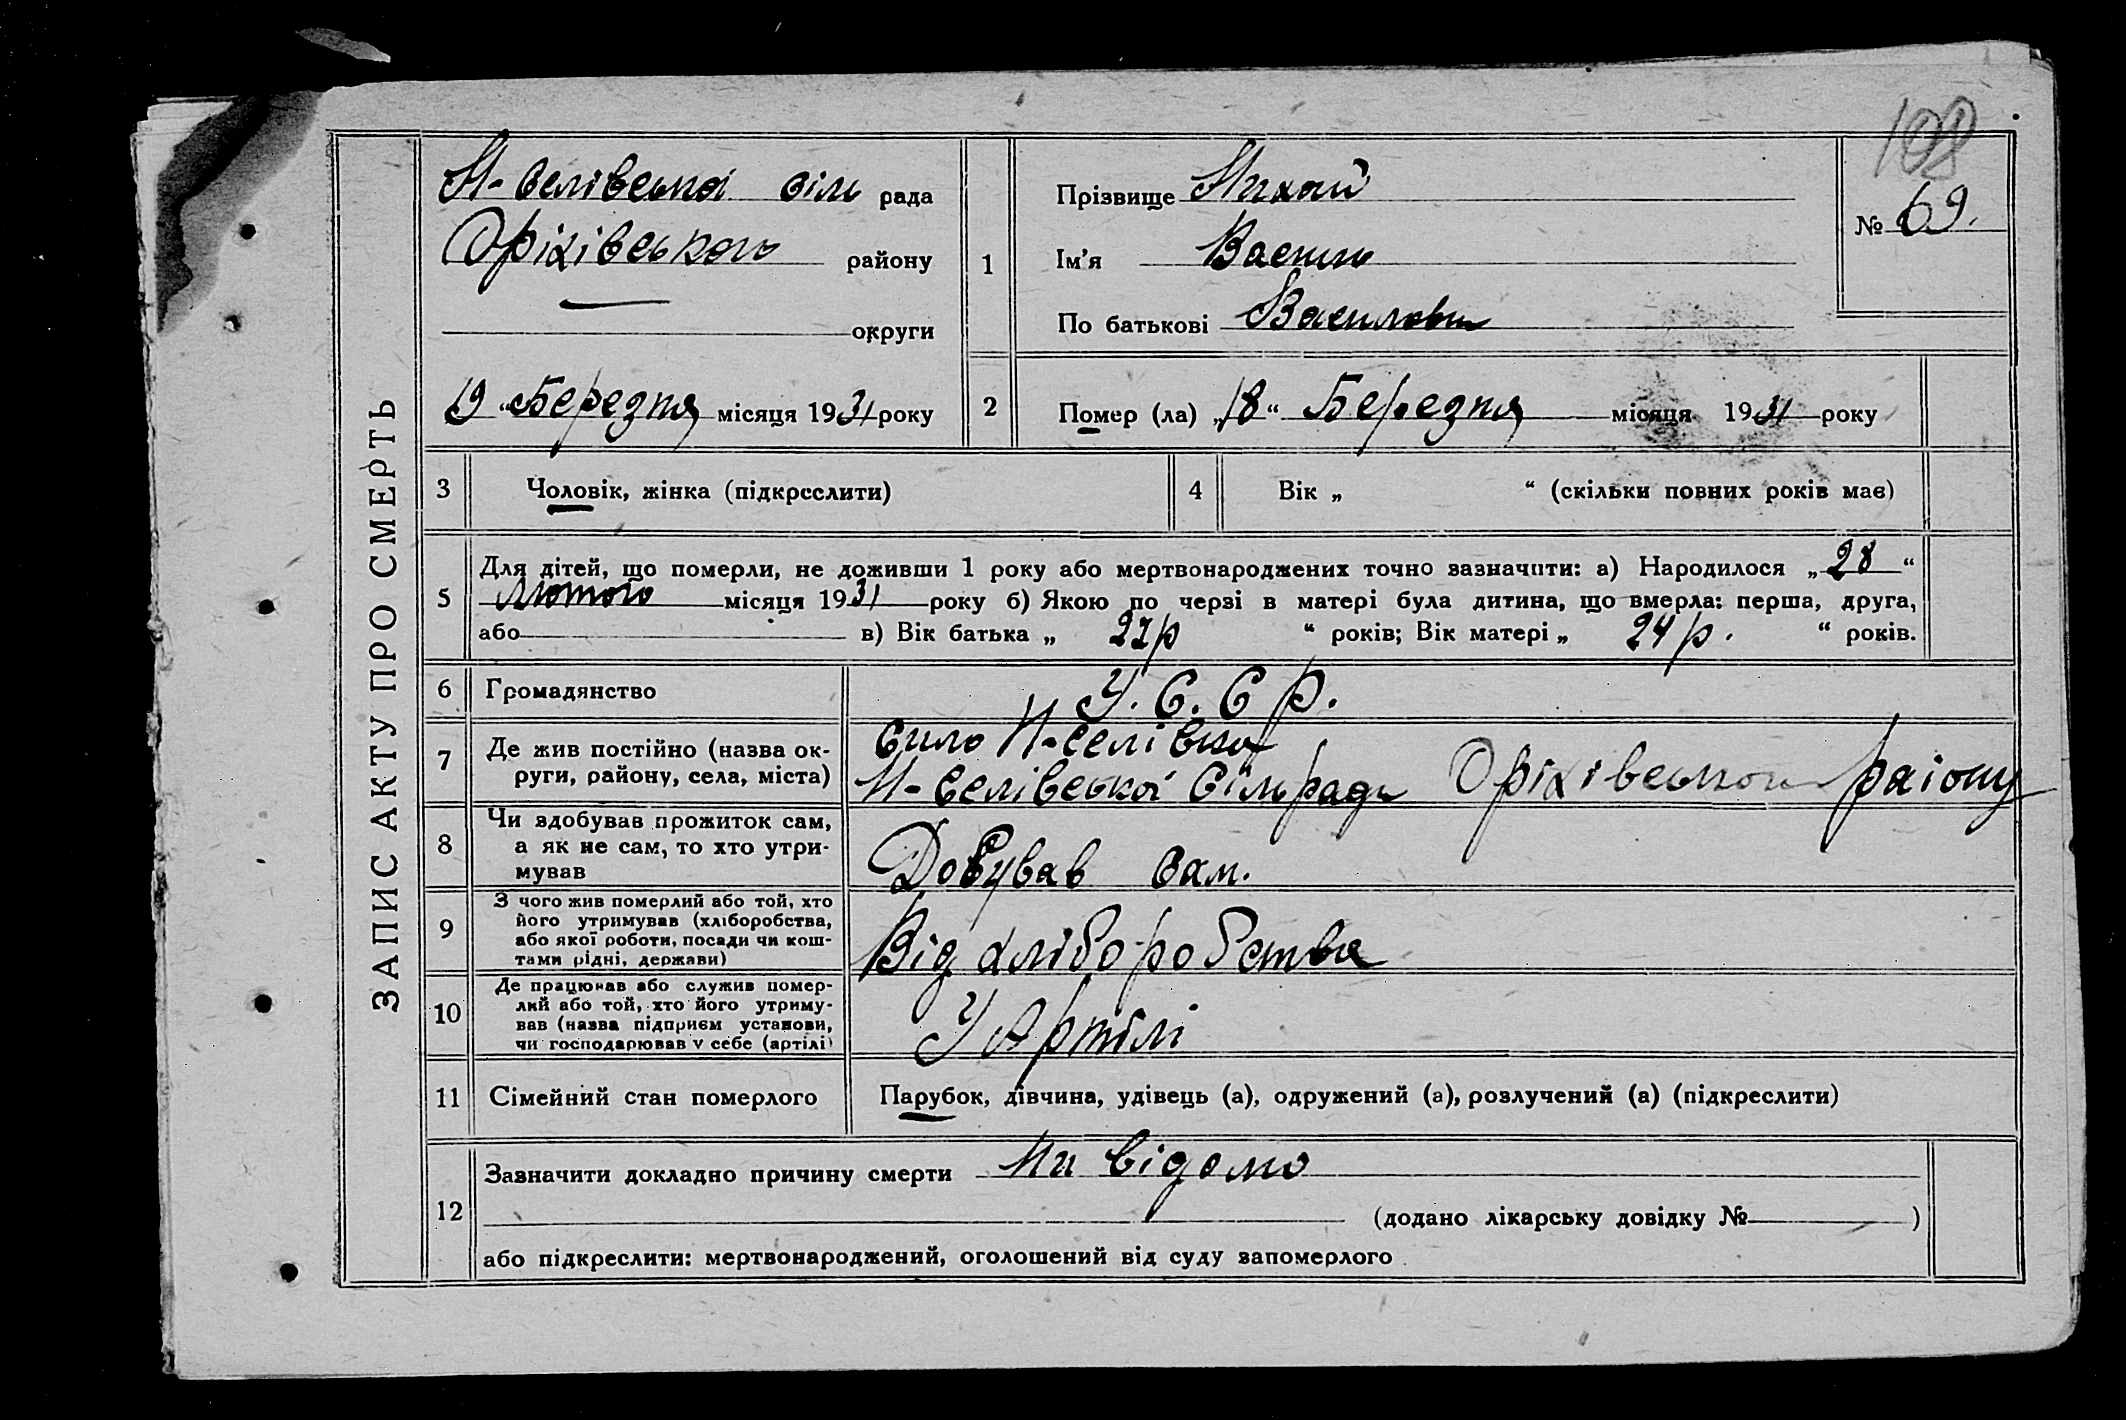 108
ЗАПИС АКТУ ПРО СМЕРТЬ
Н-Селівської сіль рада
Оріхівського району
округи
19 " Березня місяця 1931 року
1
Прізвище
Ім'я Василь
По батькові Василович
№ 69.
2
Помер (ла) „18“ Березня місяця 1931 року
3 Чоловік, жінка (підкреслити)
4 Вік „ “ (скільки повних років має)
5
Для дітей, що померли, не доживши 1 року або мертвонароджених точно зазначити: а) Народилося „28“
Лютого місяця 1931 року б) Якою по черзі в матері була дитина, що вмерла: перша, друга,
або в) Вік батька „ 27р “ років; Вік матері „ 24р. “ років.
6 Громадянство У.С.С.Р.
7 Де жив постійно (назва ок-
руги, району, села, міста)
Сило Н-Селівка
Н-Селівської Сільради Оріхівського раіону
8 Чи здобував прожиток сам,
а як не сам, то хто утри-
мував
Добував сам.
9 З чого жив померлий або той, хто
його утримував (хліборобства,
або якої роботи, посади чи кош-
тами рідні, держави)
Від хліборобства
10 Де працював або служив помер-
лий або той, хто його утриму-
вав (назва підприєм установи,
чи господарював у себе (артілі)
У Артілі
11 Сімейний стан померлого
Парубок, дівчина, удівець (а), одружений (а), розлучений (а) (підкреслити)
12
Зазначити докладно причину смерти Ни відомо
(додано лікарську довідку № )
або підкреслити: мертвонароджений, оголошений від суду запомерлого